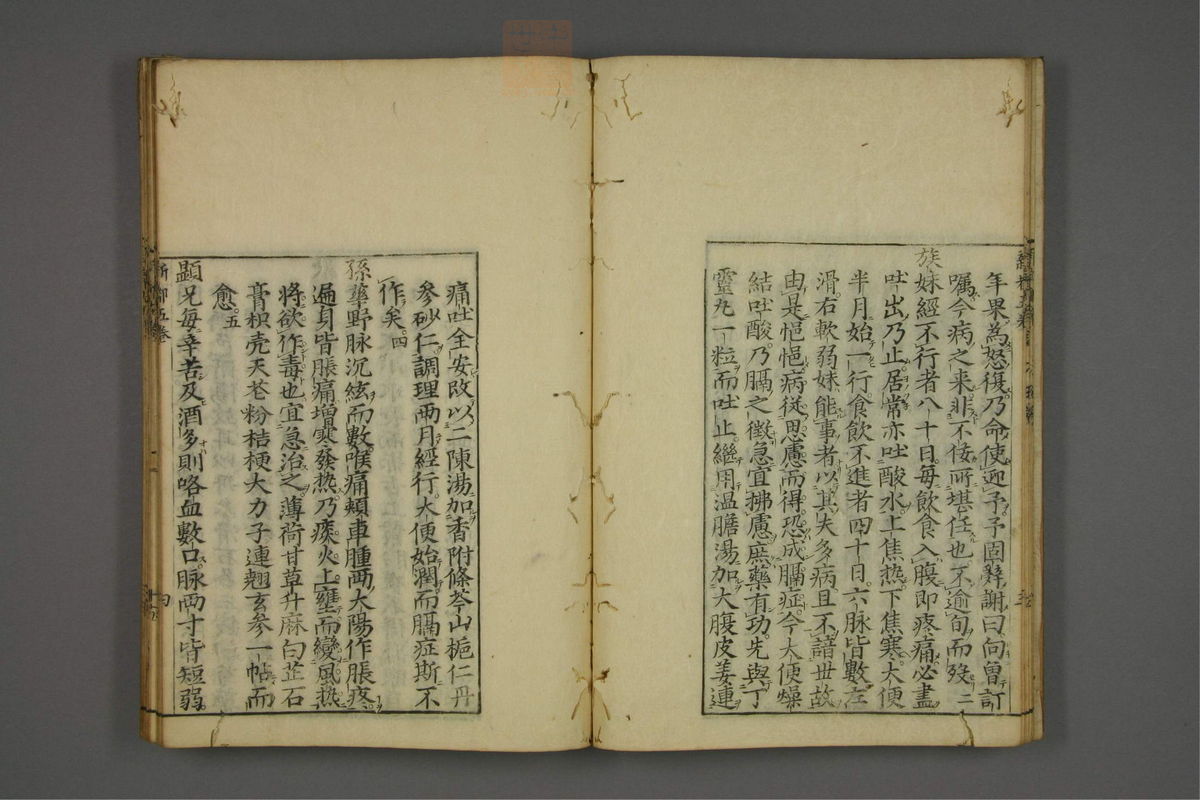 年果為怒復乃命使迎予予固辭謝曰向曾訂
囑今病之来非不佞所堪任也不逾旬而歿二
族妹經不行者八十日毎飲食入腹即疼痛必盡
吐出乃止居常亦吐酸水上焦热下焦寒大便
半月始一行食飲不進者四十日六脉皆數左
滑右軟弱妹能事者以其夫多病且不諳世故
由是悒悒病從思慮而得恐成膈症今大便燥
結吐酸乃膈之徵急宜拂慮庶藥有功先與丁
靈丸一粒而吐止繼用温膽湯加大腹皮姜連
痛吐全安改以二陳湯加香附條芩山梔仁丹
參砂仁調理两月經行大便始潤而膈症斯不
作矣四
孫華野脉沉絃而數喉痛頰車腫两太陽作脹疼
遍身皆脹痛増寒發热乃痰火上壅而變風热
将欲作毒也宜急治之薄荷甘草升麻白芷石
膏枳壳天花粉桔梗大力子連翹玄参一帖而
愈五
顕兄毎辛苦及酒多則咯血數口脉两寸皆短弱